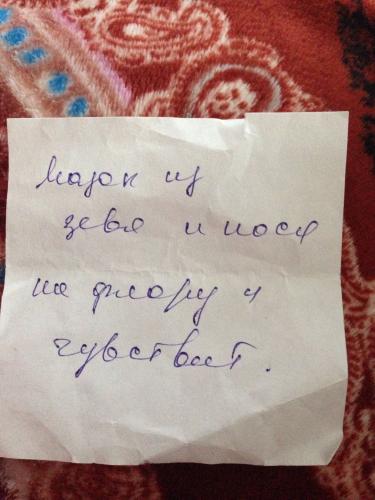 Мазок из
зева и носа
на флору и
чувствит.